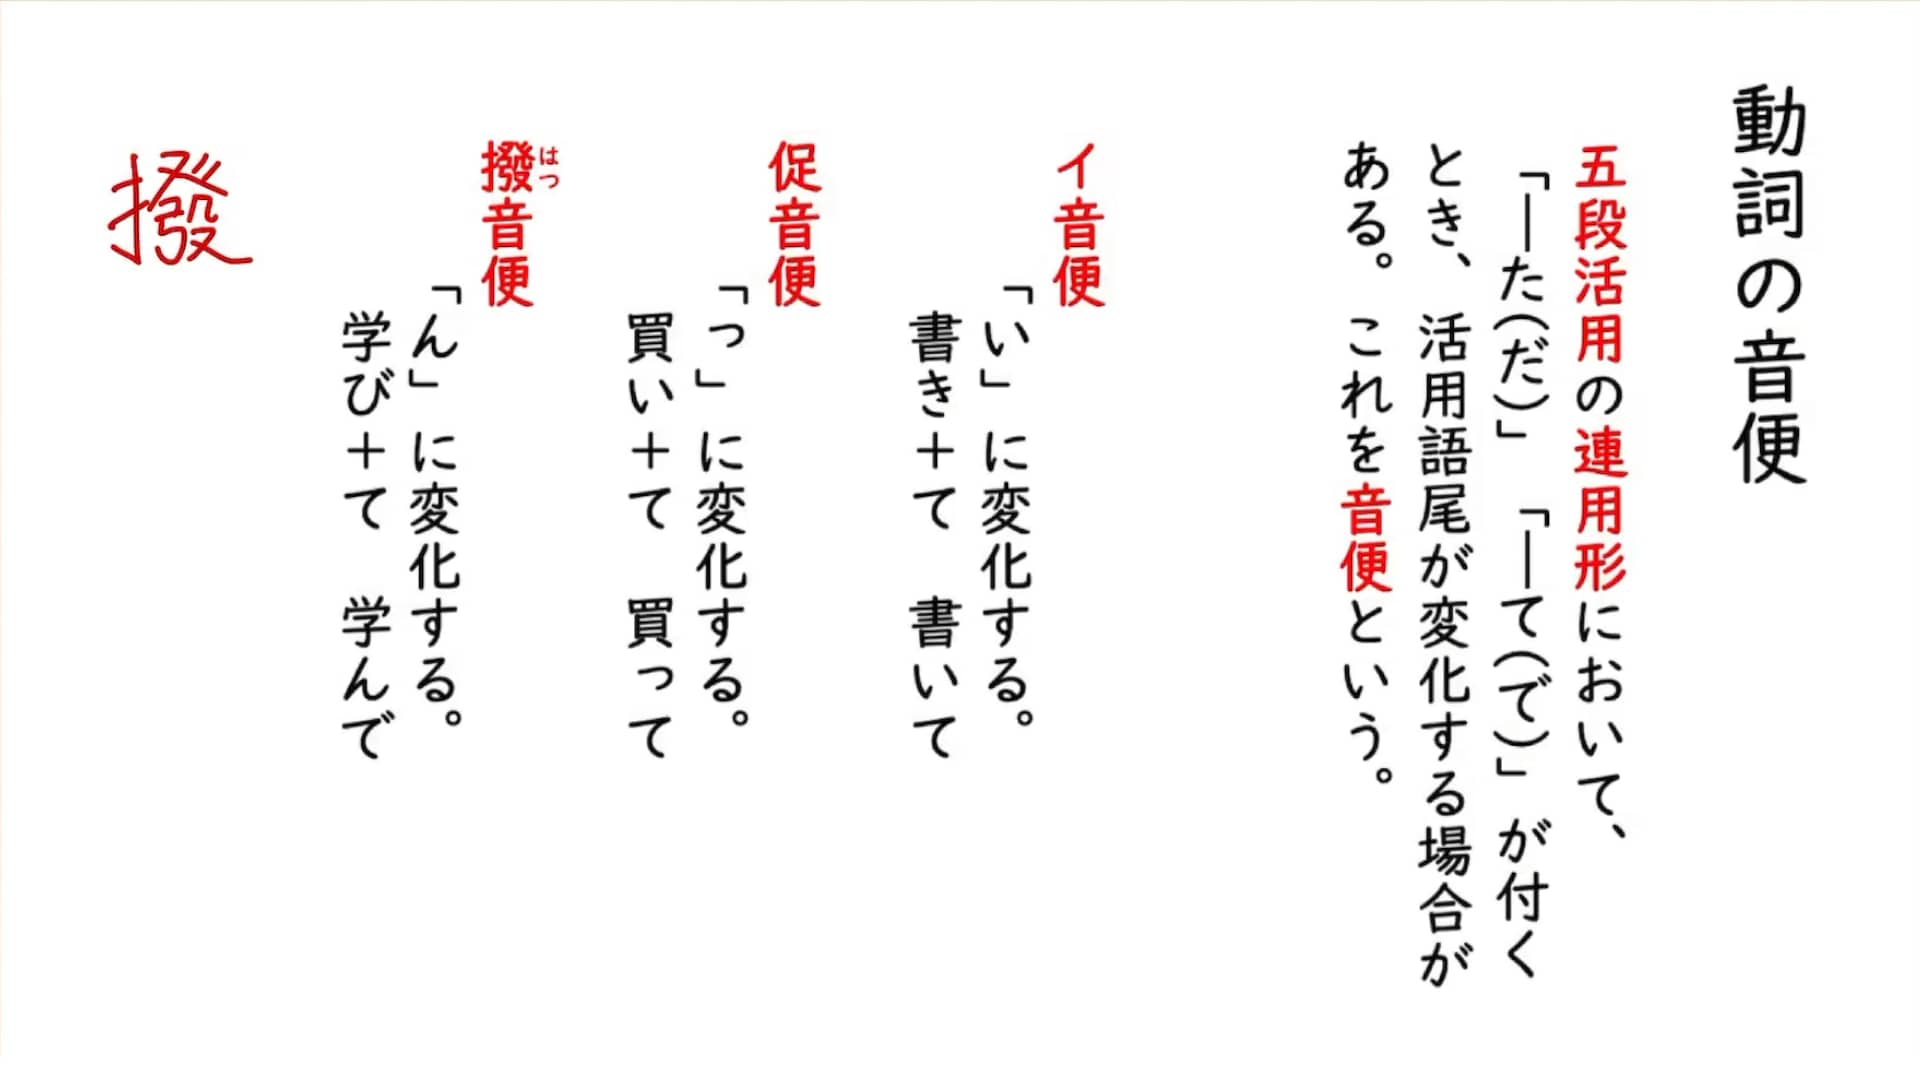 動詞の音便
五段活用の連用形において、
「―た(だ)」「―て(で)」が付く
とき、活用語尾が変化する場合が
ある。これを音便という。
イ音便
「い」に変化する。
書き＋て　書いて
促音便
「っ」に変化する。
買い＋て　買って
はつ
撥音便
「ん」に変化する。
学び＋て　学んで
撥